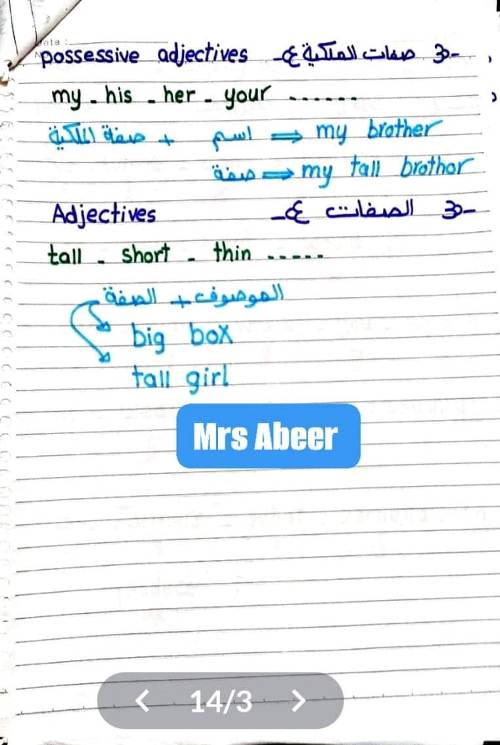 Date :
possessive adjectives صفات الملكية
my - his - her - your ......
صفة الملكية + اسم ⟹ my brother
صفة ⟹ my tall brothor
Adjectives الصفات
tall - short - thin .....
الصفة + الموصوف
big box
tall girl
Mrs Abeer
14/3